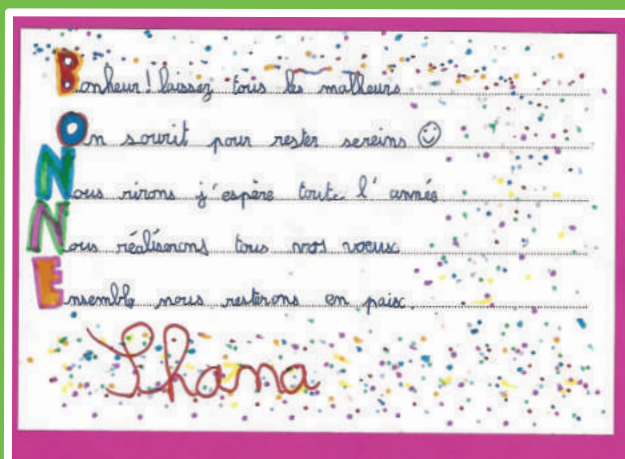 Bonheur! laissez tous les malheurs
On sourit pour rester sereins ☺
Nous rirons j'espère toute l'année
Nous réaliserons tous vos voeux
Ensemble nous resterons en paix.